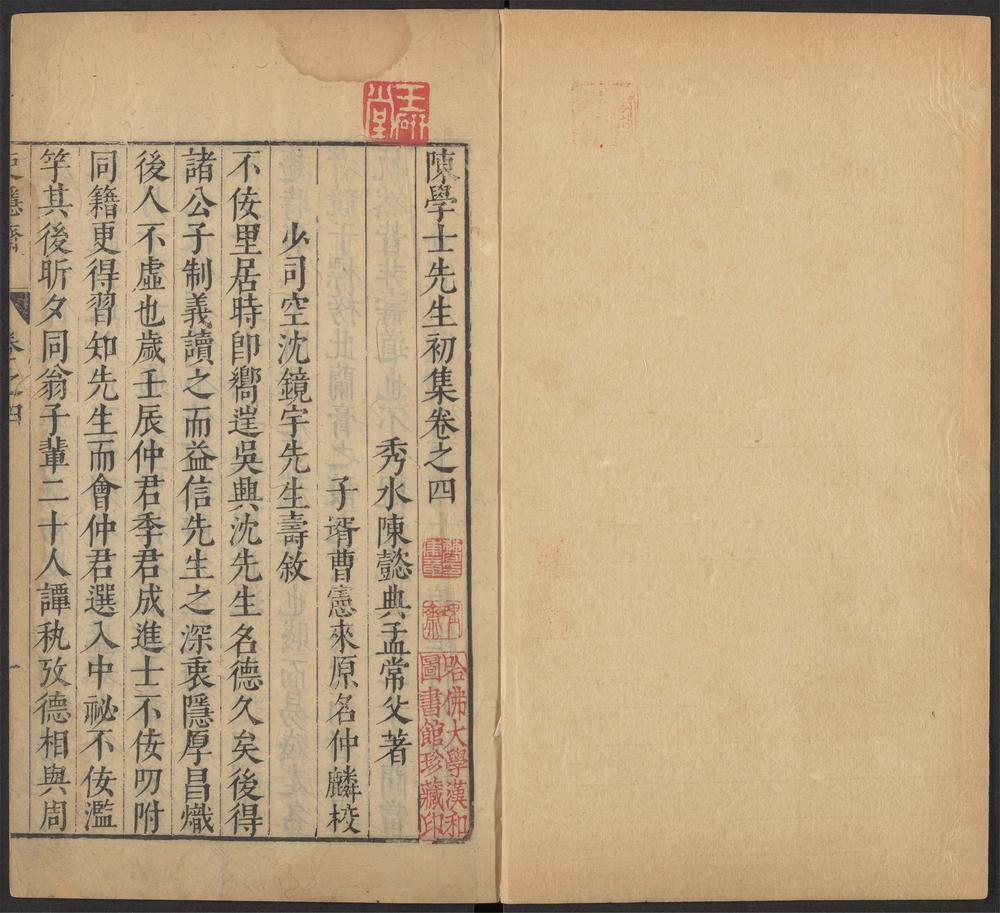 陳學士先生初集卷之四
秀水陳懿典孟常父著
子壻曹憲來原名仲麟校
少司空沈鏡宇先生壽敘
不佞里居時卽嚮遑吳興沈先生名德久矣後得
諸公子制義讀之而益信先生之深衷隱厚昌熾
後人不虛也歲壬辰仲君季君成進士不佞叨附
同籍更得習知先生而會仲君選入中祕不佞濫
竽其後昕夕同翁子輩二十人譚秇攷德相與周
卷之四
一
研堂
哈佛大學漢和
圖書館珍藏印